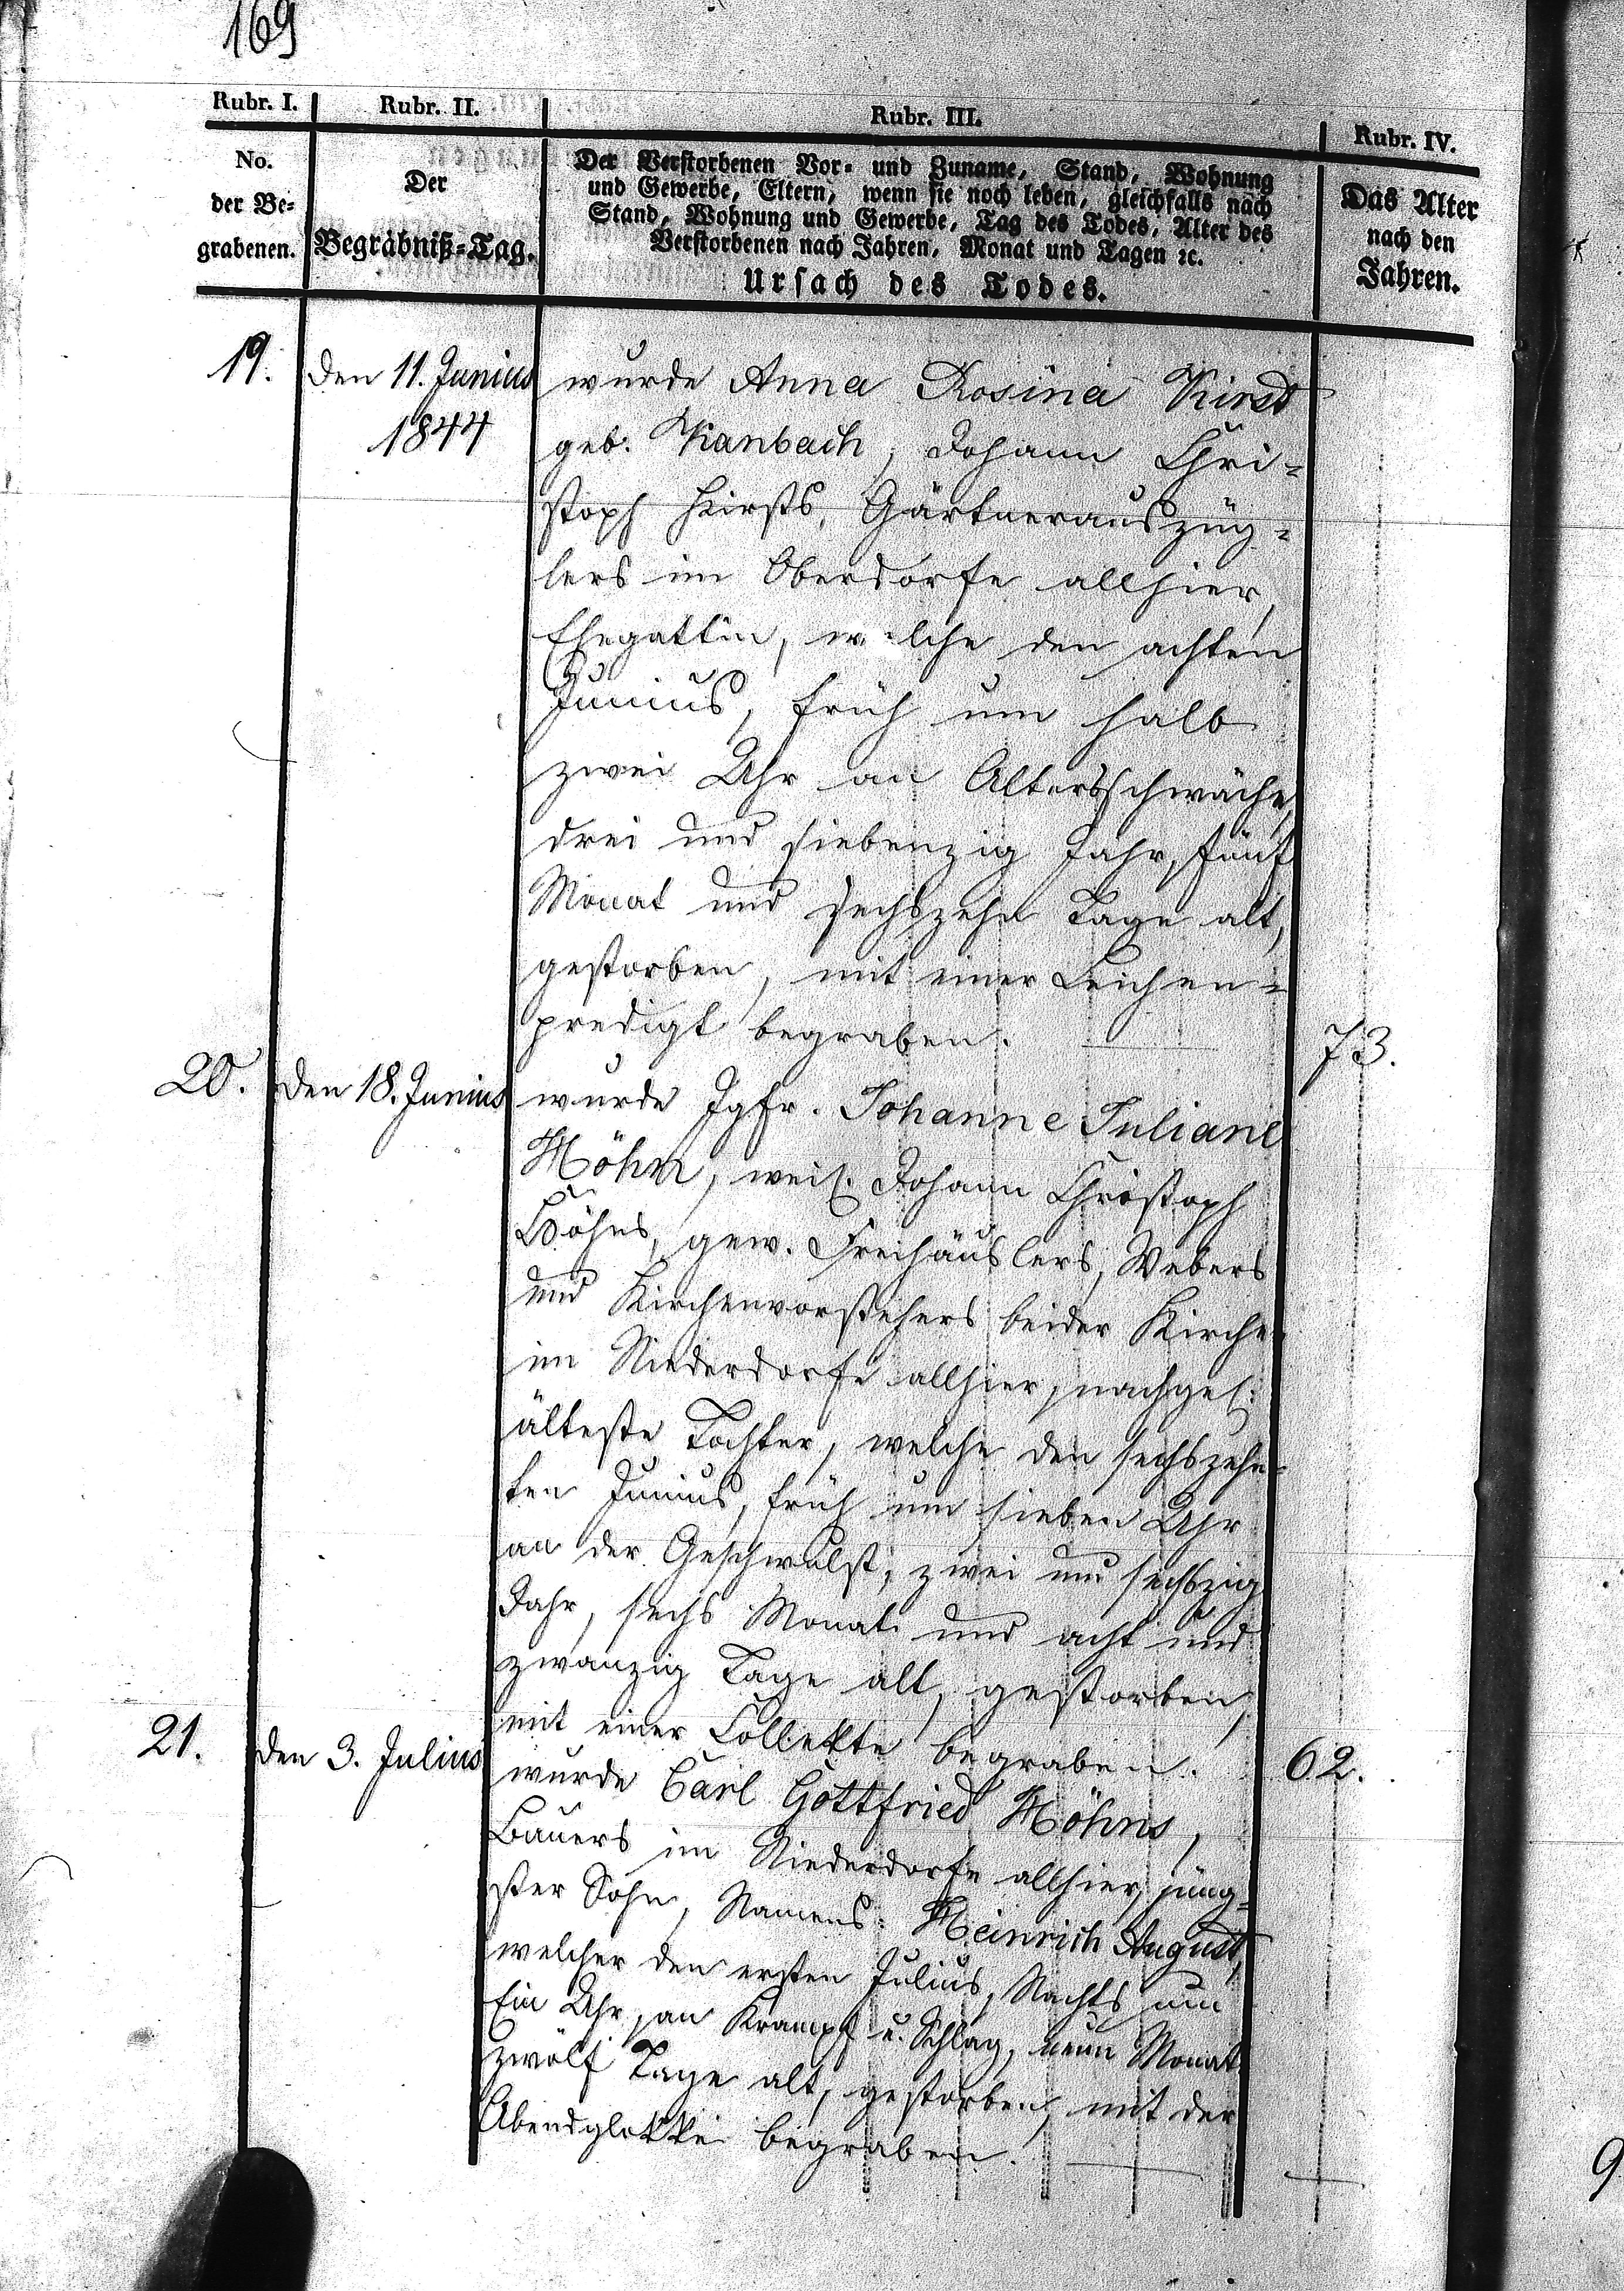 169
Rubr. I. Rubr. II. Rubr. III. Rubr. IV.
No.
der Be-
grabenen.
Der
Begräbniß-Tag.
Der Verstorbenen Vor- und Zuname, Stand, Wohnung
und Gewerbe, Eltern, wenn sie noch leben, gleichfalls nach
Stand, Wohnung und Gewerbe, Tag des Todes, Alter des
Verstorbenen nach Jahren, Monat und Tagen ꝛc.
Ursach des Todes.
Das Alter
nach den
Jahren.
19. den 11. Junius wurde Anna Rosina Kirst
1844 geb. Kanbach, Johann Chri-
stoph Kirsts, Gärtnerauszüg-
lers im Oberdorfe allhier,
Ehegattin, welche den achten
Junius, früh um halb
zwei Uhr an Altersschwäche,
drei und siebenzig Jahr, fünf
Monat und sechszehn Tage alt,
gestorben, mit einer Leichen-
predigt begraben. 73.
20. den 18. Junius wurde Jgfr. Johanne Juliane
Höhn, weil. Johann Christoph
Höhns, gew. Freihäuslers, Webers
und Kirchenvorstehers beider Kirche
im Niederdorfe allhier, nachgel.
älteste Tochter, welche den sechszehn-
ten Junius, früh um sieben Uhr
an der Geschwulst, zwei und sechszig
Jahr, sechs Monat und acht und
zwanzig Tage alt, gestorben,
mit einer Collekte begraben. 62.
21. den 3. Julius wurde Carl Gottfried Höhns,
Bauers im Niederdorfe allhier, jüng-
ster Sohn, Namens: Heinrich August,
welcher den ersten Julius, Nachts um
Ein Uhr, an Krampf u. Schlag, neun Monat
zwölf Tage alt, gestorben, mit der
Abendglokke begraben.
9